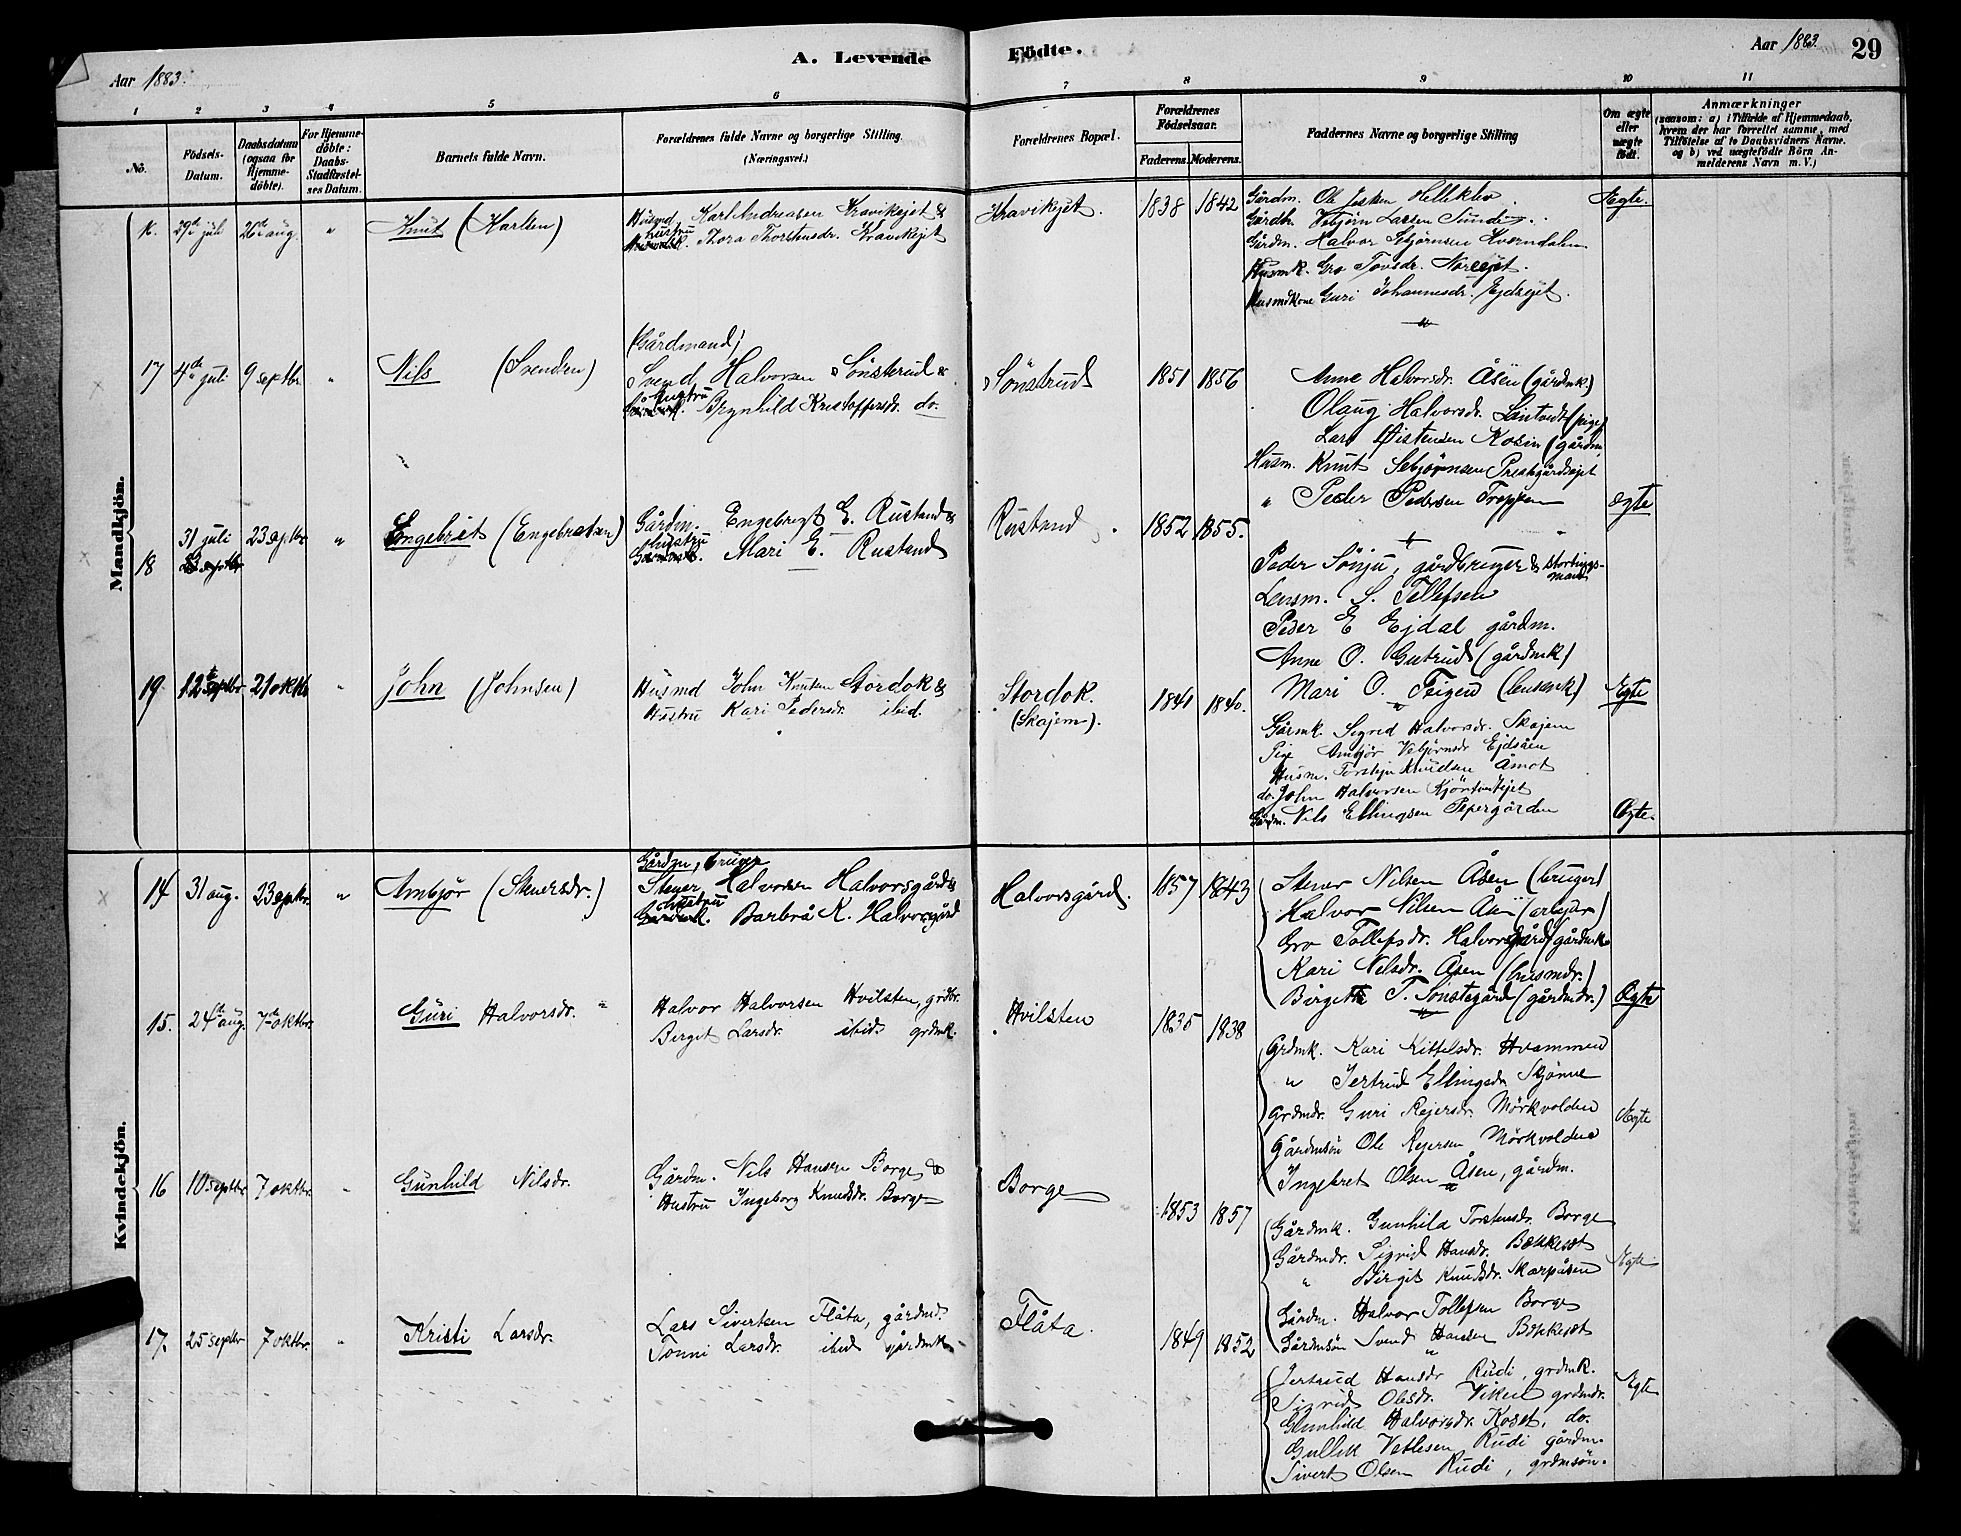 Aar 1883.
A. Levende
Födte.
Aar 1883.
29
1 2 3 4 5 6 7 8 9 10 11
No.
Födsels-Datum.
Daabsdatum (ogsaa for Hjemme-döbte).
For Hjemme-döbte: Daabs-Stadfæstel-ses Datum.
Barnets fulde Navn.
Forældrenes fulde Navne og borgerlige Stilling
(Næringsvei.)
Forældrenes Bopæl.
Forældrenes Födselsaar.
Faderens. Moderens.
Faddernes Navne og borgerlige Stilling
Om ægte eller uægte födt.
Anmærkninger
(saasom: a) i Tilfælde af Hjemmedaab, hvem der har forrettet samme, med Tilföielse af to Daabsvidners Navne. og b) ved uægtefödte Börn Anmelderens Navn m. V.)
Mandkjön.
juli 26de aug. " Knut (Karlsen)
Husmd Karl Andreasen Kravikejet &
hustru Thora Thorstensdr. Kravikejet
Kravikejet. 1838 1842
Gårdm. Ole
Vebjörn Larsen
Gårdm. Halvor Sebjörnsen Kverndalen
Husmk. Gro Tovsdr.
Husmdkone Guri Johannesdr.
Ægte.
17 4de juli 9 septbr. " Nils (Svendsen)
(Gårdmand)
Svend Halvorsen Sönsterud &
Hustru Brynhild Kristoffersdr. do.
Sönstrud 1851 1856
Anne Halvorsdr. Åsen (gårdmk.)
Olaug Halvorsdr. (pige)
Lars Øistensen (gårdm.
Husm. Knut Sebjörnsen
" Peder Pedersen Troppen
ægte
18 31 juli 23 septbr " Engebret (Engebretsen)
Gårdm. Engebregt E. Rustand &
hustru Mari E. Rustand
Rustand. 1852 1855.
Peder Sönju, gårdbruger & Stortings-mand
Lensm. S. Tollefsen
Peder E Ejdal gårdm.
Anne O. Gutrud (gårdmk)
Mari O. (lensmk)
Ægte
19 12te septbr 21 oktb " John (Johnsen)
Husmd John Knutsen Stordok &
Hustru Kari Pedersdr. ibid.
Stordok.
(Skajem). 1841 1840.
Gårmk. Sigrid Halvorsdr. Skajem
Pige Ambjör Vebjörnsdr Ejdsåen
Husm. Knudsen Åmot
do. John Halvorsen
Gårdm. Nils Ellingsen Pepergården
Ægte.
Kvindekjön.
14 31 aug. 23 septbr. " Ambjör (Stenersdr.)
Gårdm, bruger
Stener Halvorsen Halvorsgård &
hustru Barbrå K. Halvorsgård
Halvorsgård. 1857 1843
Stener Nilsen Åsen (bruger)
Halvor Nilsen Åsen (arbejdr)
Gro Tollefsdr. Halvorsgård gårdmk.
Kari Nilsdr. Åsen (husmdr.)
Birgette T. Sönstegård (gårdmdr.)
Ægte
15. 24de aug. 7de oktbr. Guri Halvorsdr. "
Halvor Halvorsen Hvilsten, grdbr.
Birgit Larsdr. ibid. grdmk.
Hvilsten 1835 1838
Grdmk. Kari Kittelsdr. Hvammen
" Jertrud Ellingsdr Skjönne
Grdmdr. Guri Rejersdr. Mörkvolden
Gårdmsön Ole Rejersen Mörkvolden
Ingebret Olsen Åsen, gårdm.
Ægte
16 10 septbr 7 oktbr. " Gunhild Nilsdr.
Gårdm. Nils Hansen Borge &
Hustru Ingeborg Knudsdr. Borge
Borge 1853 1857
Gårdmk. Gunhild Torstensdr. Borge
Gårdmdr. Sigrid Hansdr. Bækkesæt
" Birgit Knudsdr. Skarpåsen
Gårdm. Halvor Tollefsen Borge
Gårdmsön Svend Hansen Bækkesæt
Ægte
17. 25 septbr 7 oktbr. " Kristi Larsdr.
Lars Sivertsen Flåta, gårdmd.
Tonni Larsdr. ibid gårdmk.
Flåta. 1849 1852
Jertrud Hansdr Rudi, grdmk.
Sigrid Olesdr. Viken grdmdr.
Gunhild Halvorsdr. Roset, do.
Gullik Vetlesen Rudi gårdm.
Sivert Olsen Rudi, grdmsön.
Ægte